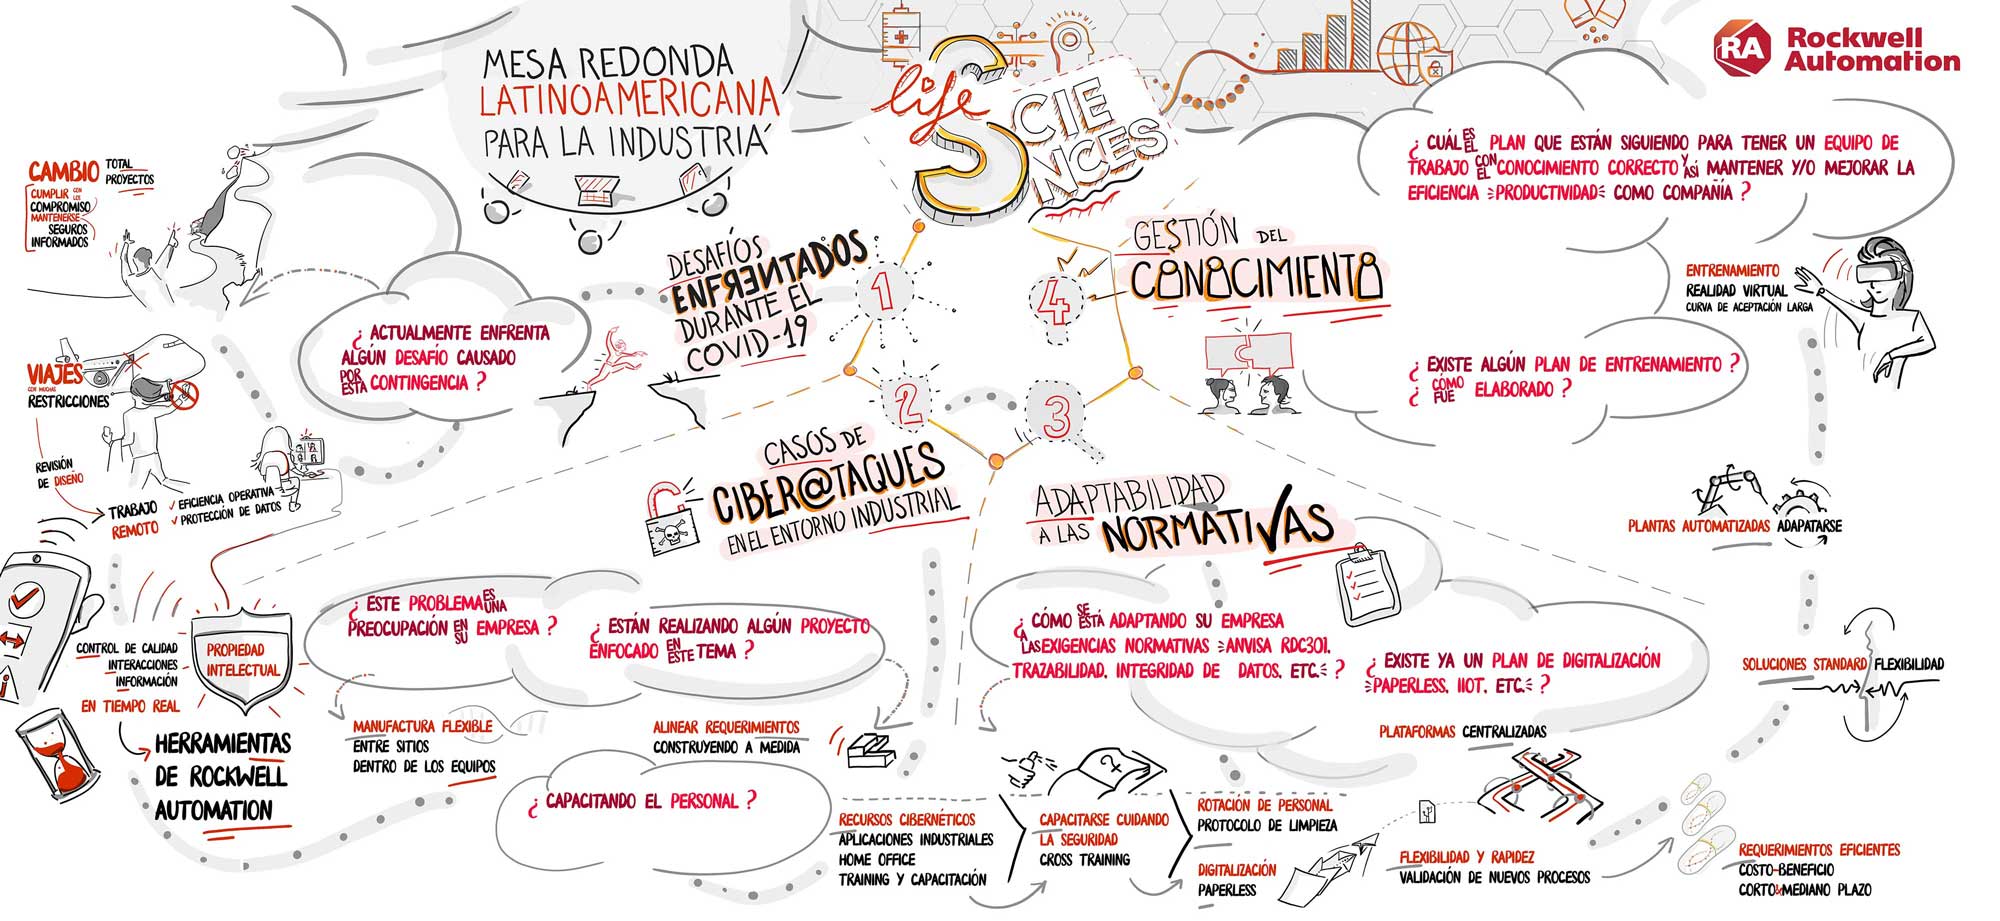 MESA REDONDA
LATINOAMERICANA
PARA LA INDUSTRIA
life
SCIE
NCES
RA
Rockwell
Automation
1
DESAFÍOS
ENFRENTADOS
DURANTE EL
COVID-19
¿ ACTUALMENTE ENFRENTA
ALGÚN DESAFÍO CAUSADO
POR ESTA CONTINGENCIA ?
CAMBIO TOTAL
PROYECTOS
CUMPLIR CON LOS
COMPROMISO
MANTENERSE
SEGUROS
INFORMADOS
VIAJES
CON MUCHAS
RESTRICCIONES
REVISIÓN
DE DISEÑO
TRABAJO
REMOTO
✓ EFICIENCIA OPERATIVA
✓ PROTECCIÓN DE DATOS
CONTROL DE CALIDAD
INTERACCIONES
INFORMACIÓN
EN TIEMPO REAL
PROPIEDAD
INTELECTUAL
HERRAMIENTAS
DE ROCKWELL
AUTOMATION
2
CASOS DE
CIBER@TAQUES
EN EL ENTORNO INDUSTRIAL
¿ ESTE PROBLEMA ES UNA
PREOCUPACIÓN EN SU EMPRESA ?
¿ ESTÁN REALIZANDO ALGÚN PROYECTO
ENFOCADO EN ESTE TEMA ?
MANUFACTURA FLEXIBLE
ENTRE SITIOS
DENTRO DE LOS EQUIPOS
ALINEAR REQUERIMIENTOS
CONSTRUYENDO A MEDIDA
¿ CAPACITANDO EL PERSONAL ?
RECURSOS CIBERNÉTICOS
APLICACIONES INDUSTRIALES
HOME OFFICE
TRAINING Y CAPACITACIÓN
3
ADAPTABILIDAD
A LAS NORMATIVAS
¿ CÓMO SE ESTÁ ADAPTANDO SU EMPRESA
A LAS EXIGENCIAS NORMATIVAS ANVISA RDC301,
TRAZABILIDAD, INTEGRIDAD DE DATOS, ETC. ?
¿ EXISTE YA UN PLAN DE DIGITALIZACIÓN
PAPERLESS, IIOT, ETC. ?
CAPACITARSE CUIDANDO
LA SEGURIDAD
CROSS TRAINING
ROTACIÓN DE PERSONAL
PROTOCOLO DE LIMPIEZA
DIGITALIZACIÓN
PAPERLESS
PLATAFORMAS CENTRALIZADAS
FLEXIBILIDAD Y RAPIDEZ
VALIDACIÓN DE NUEVOS PROCESOS
4
GESTIÓN DEL
CONOCIMIENTO
¿ CUÁL ES EL PLAN QUE ESTÁN SIGUIENDO PARA TENER UN EQUIPO DE
TRABAJO CON EL CONOCIMIENTO CORRECTO Y ASÍ MANTENER Y/O MEJORAR LA
EFICIENCIA PRODUCTIVIDAD COMO COMPAÑÍA ?
ENTRENAMIENTO
REALIDAD VIRTUAL
CURVA DE ACEPTACIÓN LARGA
¿ EXISTE ALGÚN PLAN DE ENTRENAMIENTO ?
¿ CÓMO FUE ELABORADO ?
PLANTAS AUTOMATIZADAS ADAPATARSE
SOLUCIONES STANDARD FLEXIBILIDAD
REQUERIMIENTOS EFICIENTES
COSTO-BENEFICIO
CORTO & MEDIANO PLAZO